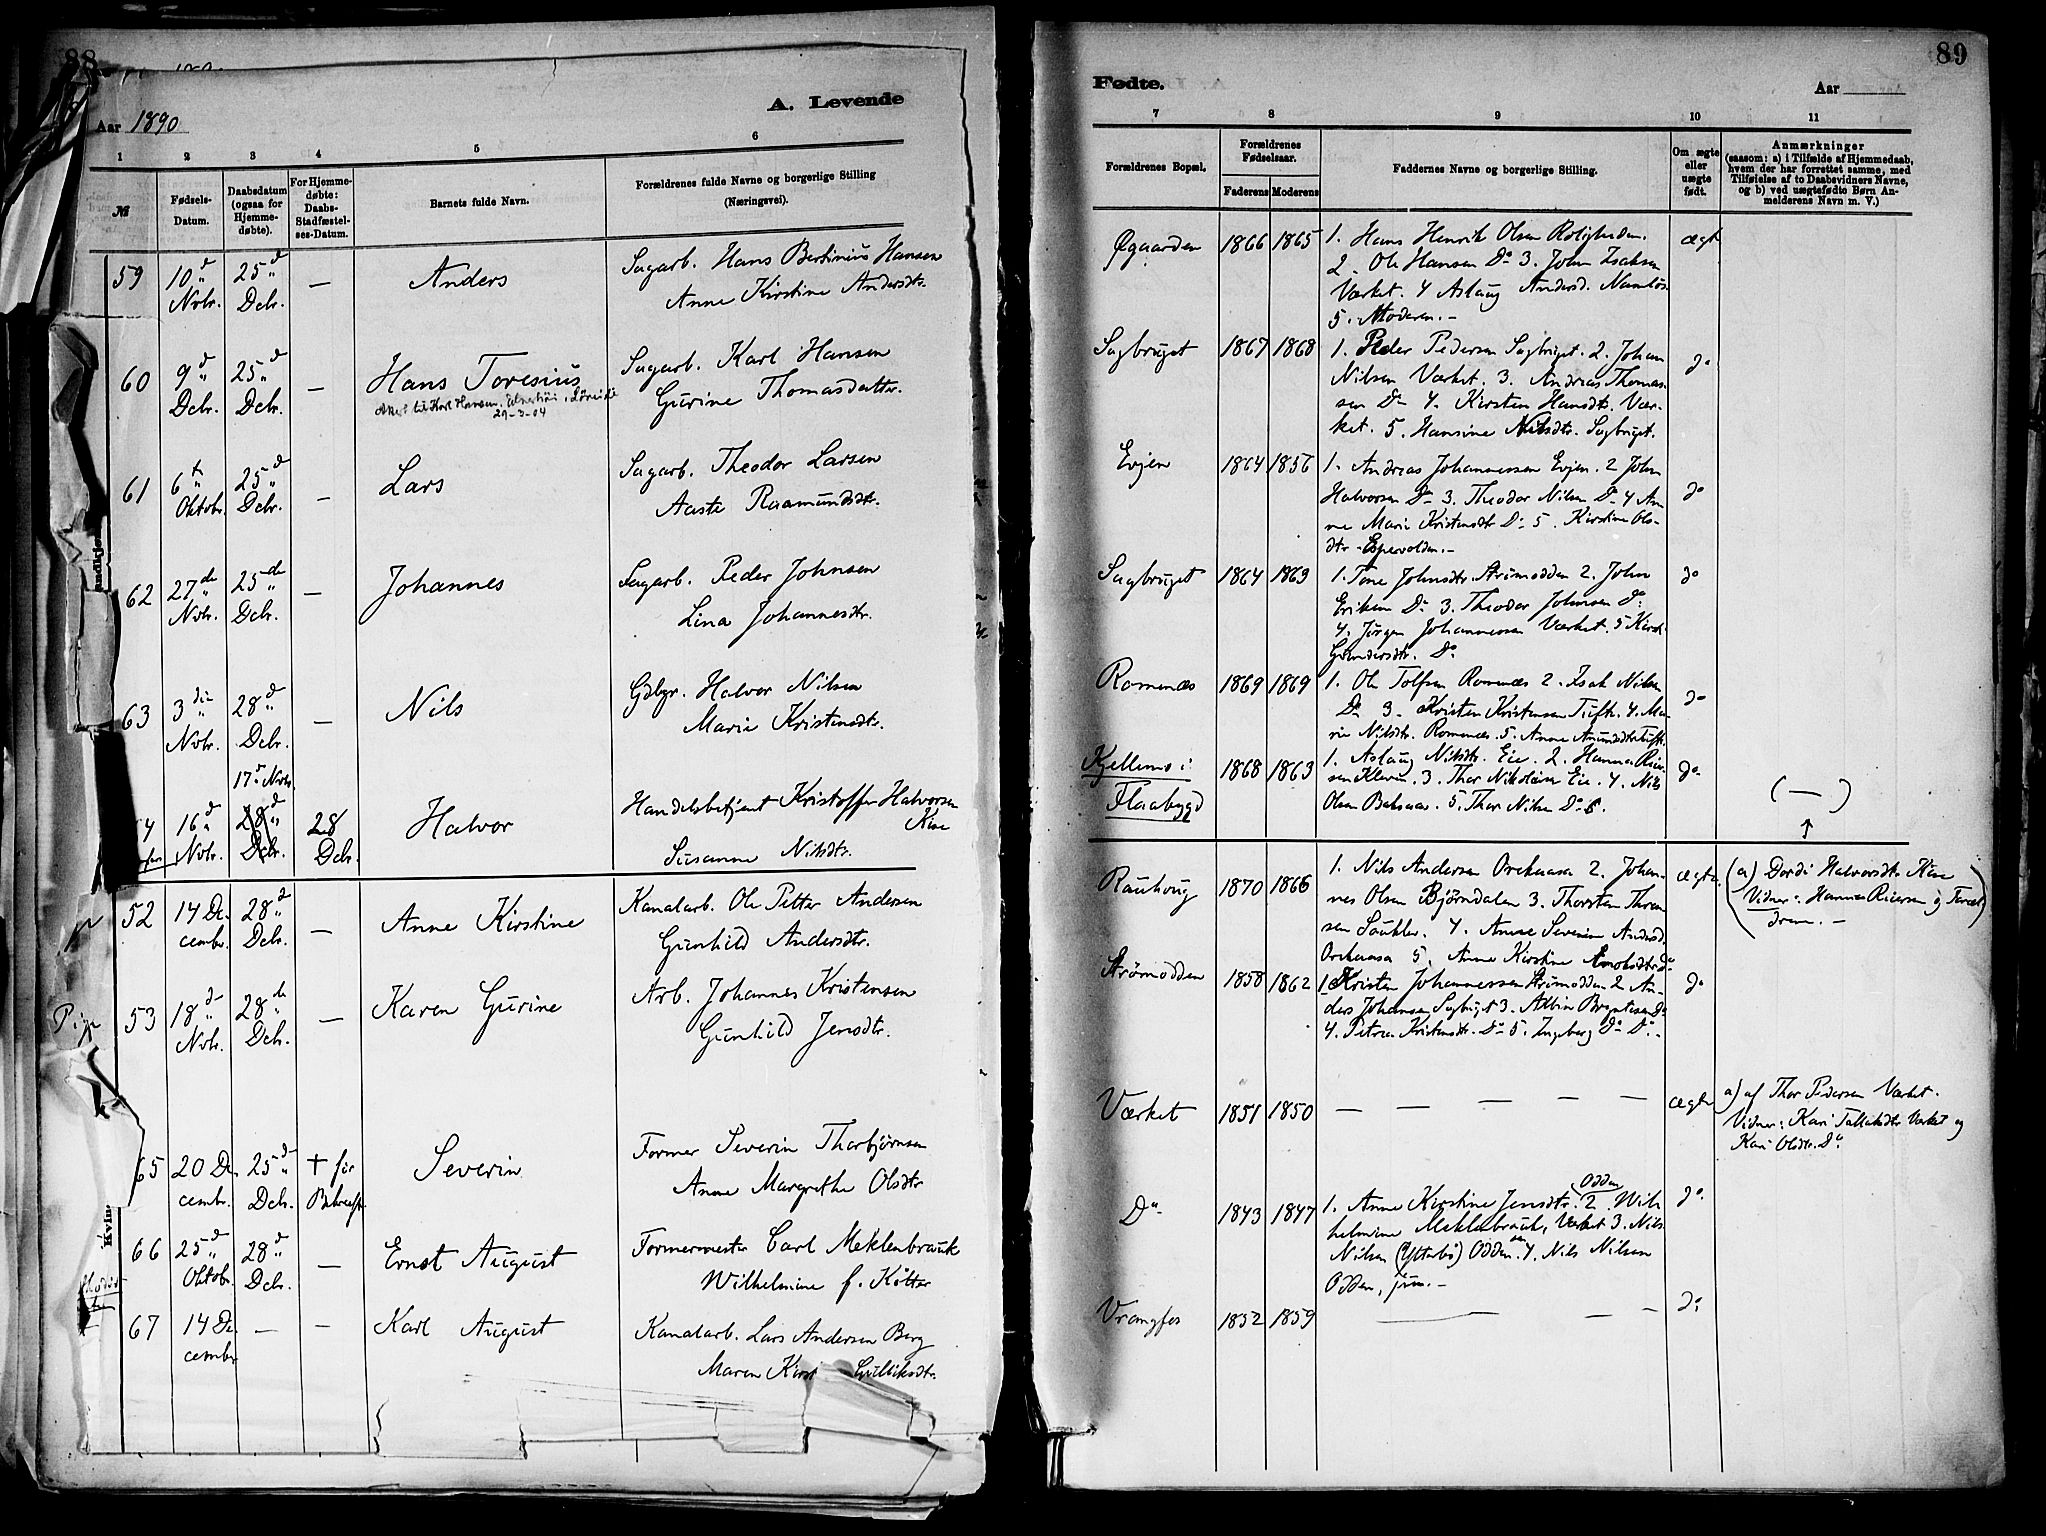 88
Aar 1890
A. Levende
1 2 3 4 5 6
№
Fødsels-
Datum.
Daabsdatum
(ogsaa for
Hjemme-
døbte).
For Hjemme-
døbte:
Daabs-
Stadfæstel-
ses-Datum.
Barnets fulde Navn.
Forældrenes fulde Navne og borgerlige Stilling
(Næringsvei).
59 10 d 25 d — Anders Sagarb. Hans Bertinius Hansen
Nvbr. Dcbr. Anne Kirstine Andersdtr.
60 9 d 25 d — Hans Toresius Sagarb. Karl Hansen
Dcbr. Dcbr. Gurine Thomasdatter.
29-3-04
61 6 t 25 d — Lars Sagarb. Theodor Larsen
Oktobr. Dcbr. Aaste Raamundsdtr.
62 27 de 25 de — Johannes Sagarb. Peder Johnsen
Nvbr. Dcbr. Lina Johannesdtr.
63 3 die 28 d — Nils Gdbgr. Halvor Nilsen
Nvbr. Dcbr. Marie Kristensdtr.
17 d Nvbr.
4 16 d 28 d 28 Halvor Handelsbetjent Kristoffer Halvorsen
Kise
Nvbr. Dcbr. Dcbr. Susanne Nilsdtr.
52 14 De- 28 d — Anne Kirstine Kanalarb. Ole Petter Andersen
cembr. Dcbr. Gunhild Andersdtr.
53 18 d 28 de — Karen Gurine Arb. Johannes Kristensen
Nvbr. Dcbr. Gunhild Jensdtr.
65 20 De- 25 d † før Severin Former Severin Thorbjørnsen
cembr. Dcbr. Bekræft. Anne Margrethe Olsdtr
66 25 d 28 d — Ernst August Formermester Carl Meklenbrauk
Oktobr. Dcbr. Wilhelmine f. Kötter
67 14 De- — — Karl August Kanalarb. Lars Andersen Berg
cembr Maren Kirst Gulliksdtr.
89
Fødte.
Aar
7 8 9 10 11
Forældrenes Bopæl.
Forældrenes
Fødselsaar.
Faderens Moderens
Faddernes Navne og borgerlige Stilling.
Om ægte
eller
uægte
født.
Anmærkninger
(saasom: a) i Tilfælde af Hjemmedaab,
hvem der har forrettet samme, med
Tilføielse af to Daabsvidners Navne,
og b) ved uægtefødte Børn An-
melderens Navn m. V.)
Øgaarden 1866 1865 1. Hans Henrik Olsen Roligheden. ægt
2. Ole Hansen Do 3. John Isaksen
Værket. 4 Aslaug Andersd. Namløs
5. Moderen. —
Sagbruget 1867 1868 1. Peder Pedersen Sagbruget. 2. Johan do
Nilsen Værket. 3. Andreas Thomas-
sen Do 4. Kirsten Hansdtr. Vær-
ket. 5. Hansine Nilsdtr. Sagbruget.
Evjen 1864 1856 1. Andreas Johannessen Evjen. 2 John
Halvorsen Do 3. Theodor Nilsen Do 4 An- do
ne Marie Kristensdtr Do 5. Kirstine Ols-
dtr. Espevolden. —
Sagbruget 1864 1869 1. Tone Johnsdtr. Strømodden 2. John do
Eriksen Do 3. Theodor Johnsen Do
4. Jørgen Johannessen Værket. 5 Kirst.
Gundersdtr. Do
Romenæs 1869 1869 1. Ole Tolfsen Romenæs 2. Isak Nilsen do
Do 3. Kristen Kristensen Tufte. 4. Ma-
rie Nilsdtr. Romenæs. 5. Anne Amundsdtr. Tufte.
Kjellemo i 1868 1863 1. Aslaug Nilsdtr. Eie. 2. Hannes Rier- do
Flaabygd sen Kleven. 3. Thor Nikolaisen Eie. 4. Nils
Olsen Baksaas. 5. Thor Nilsen Do
( — )
Rauhoug 1870 1866 1. Nils Andersen Orekaasa 2. Johan- ægte.
nes Olsen Bjørndalen 3. Thorsten Thron-
sen Saukler. 4. Anne Severine Andersd.
Orekaasa 5. Anne Kirstine Enoksdtr. Do
(a) Dordi Halvorsdtr Kise
Vidner: Hannes Riersen og Faed-
drene. —
Strømodden 1858 1862 1. Kristen Johannessen Strømodden 2 An- do
ders Johansen Sagbruget 3. Albin Berntsen Do
4. Petrea Kristensdtr. Do 5. Ingeborg Do Do. —
Værket 1851 1850 — — — — — ægte a) af Thor Pedersen Værket.
Vidner: Kari Tallaksdtr Værket og
Kari Olsdtr. Do
Do 1843 1847 1. Anne Kirstine Jensdtr. Odden 2. Wil- do
helmine Meklenbrauk, Værket 3. Nils
Nilsen (Ytterbø) Odden. 4. Nils Nilsen
Odden, jun. —
Vrangfos 1852 1859 — — — do